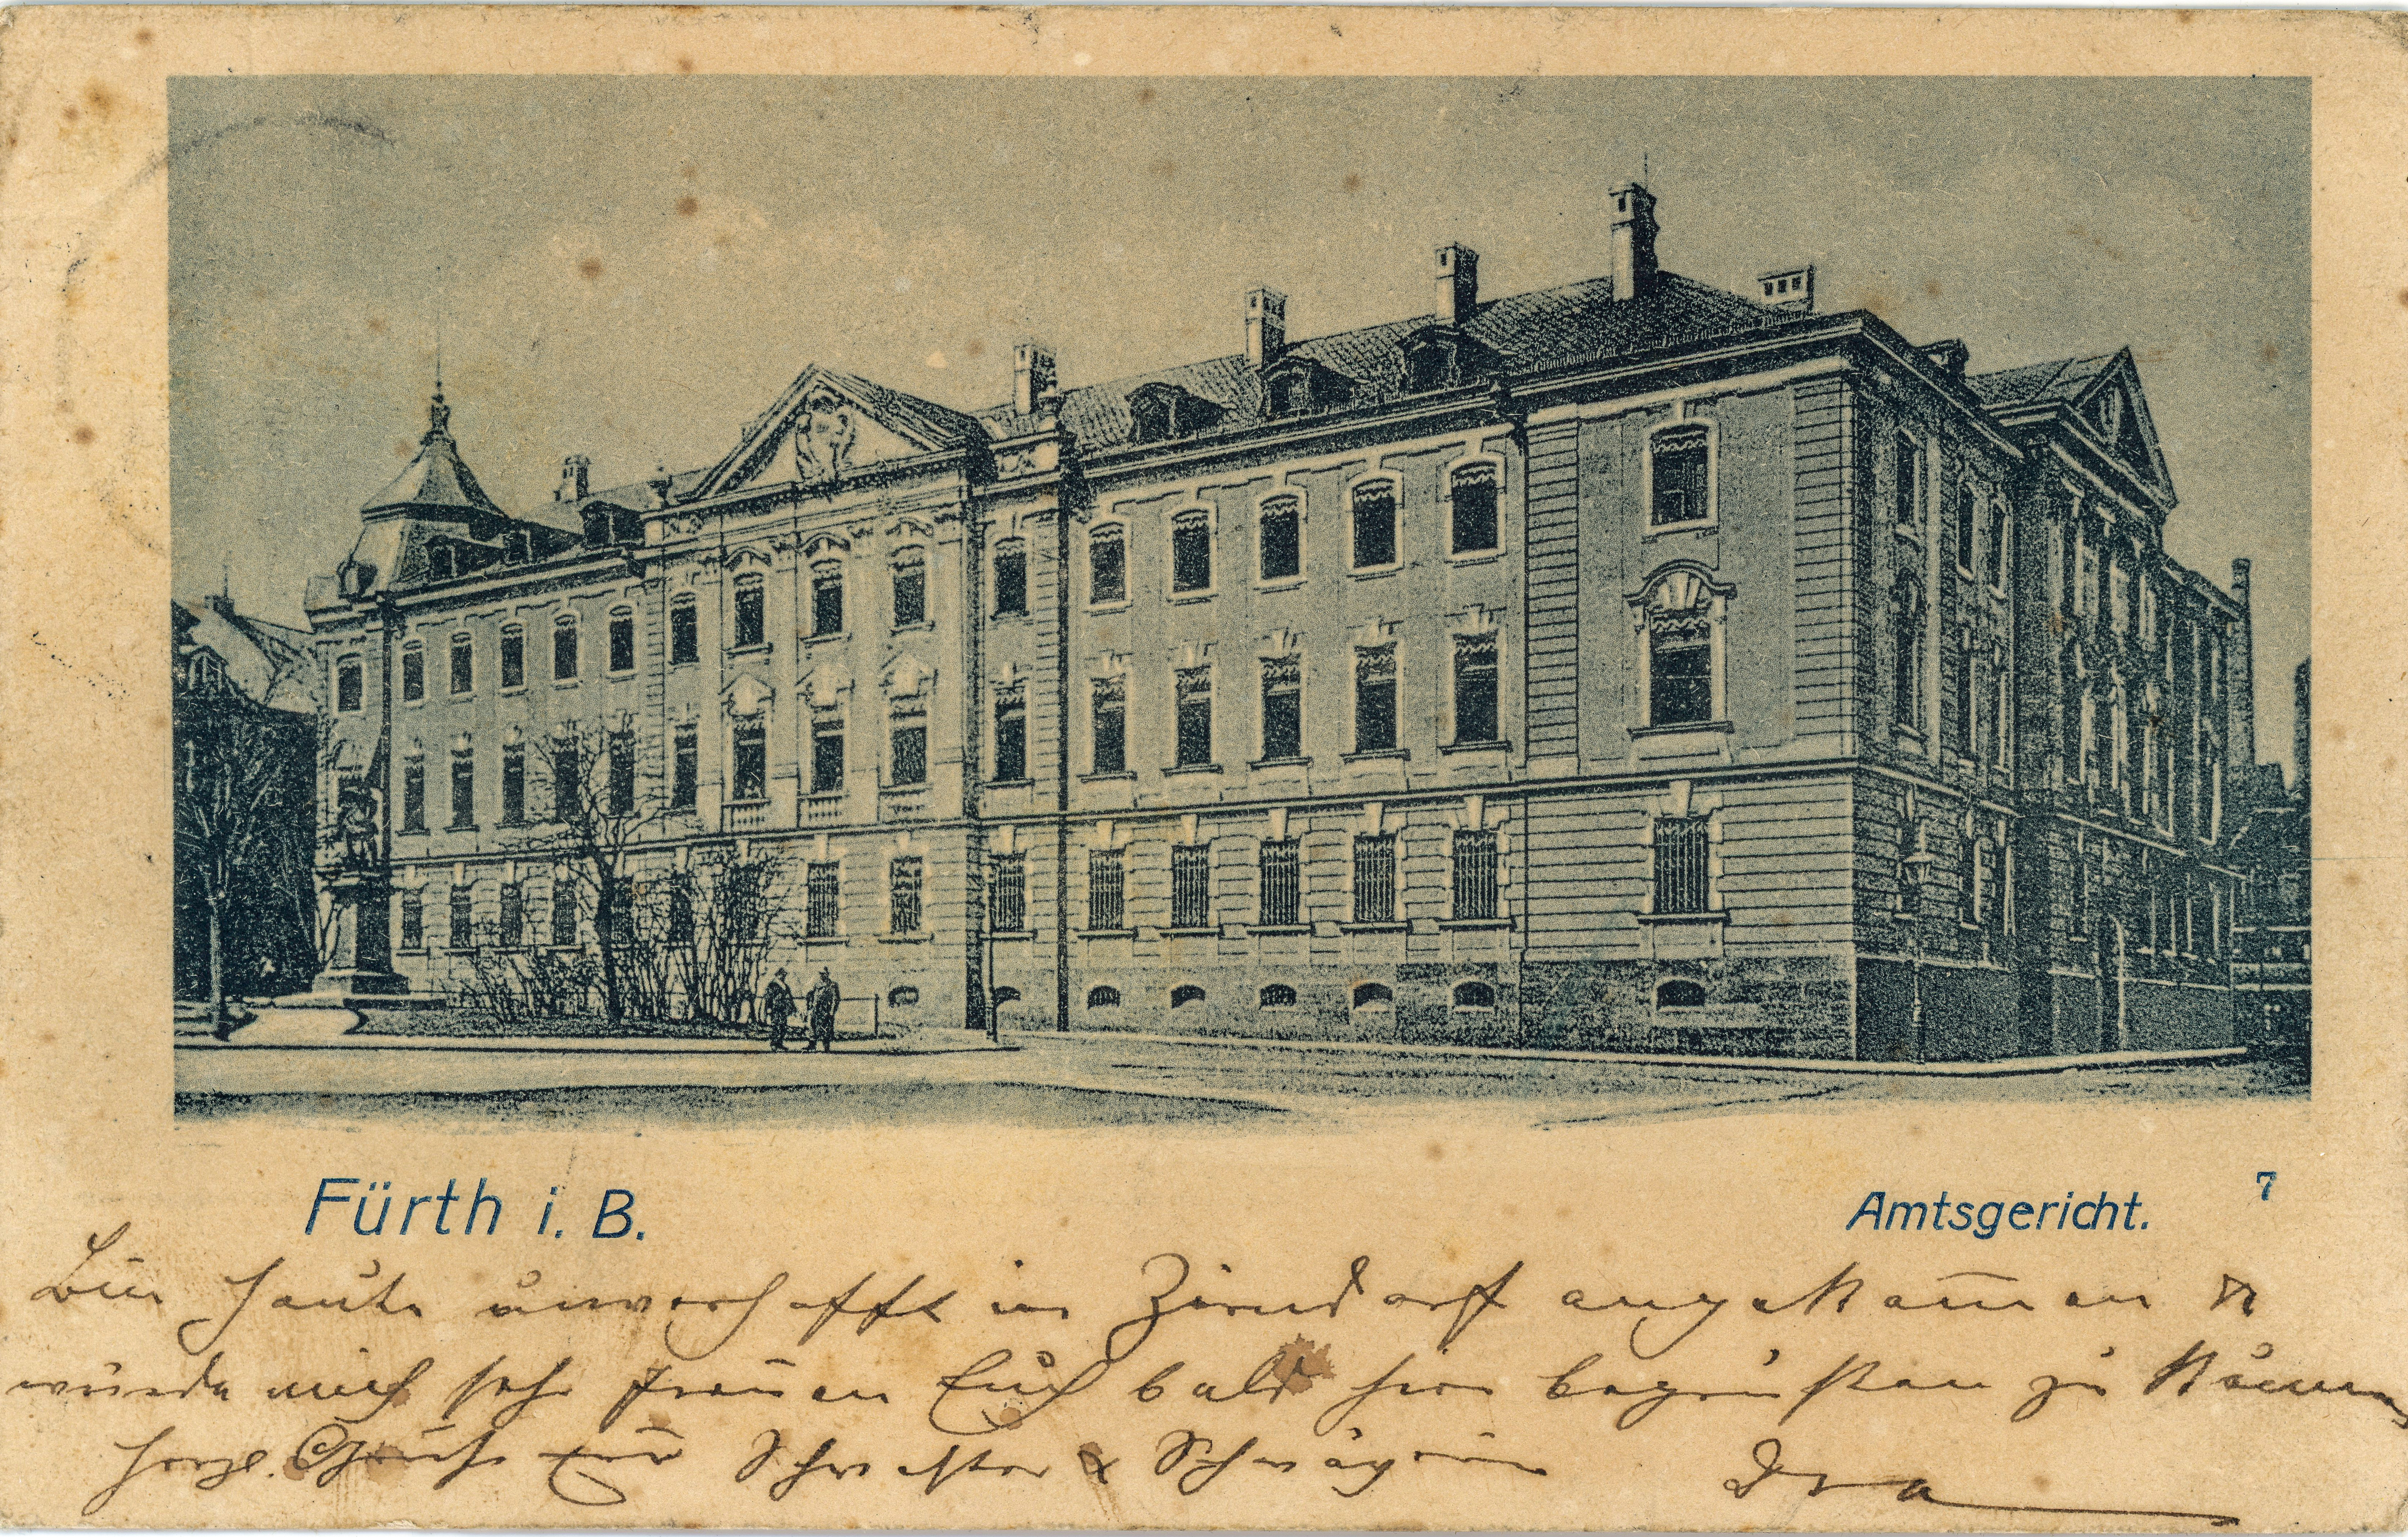 Fürth i. B.
Amtsgericht.
7
Bin heute unverhofft in Zirndorf angekom̅en &
würde mich sehr freuen Euch bald hier begrüßen zu können
herzl. Grüße Schwester & Schwägerin